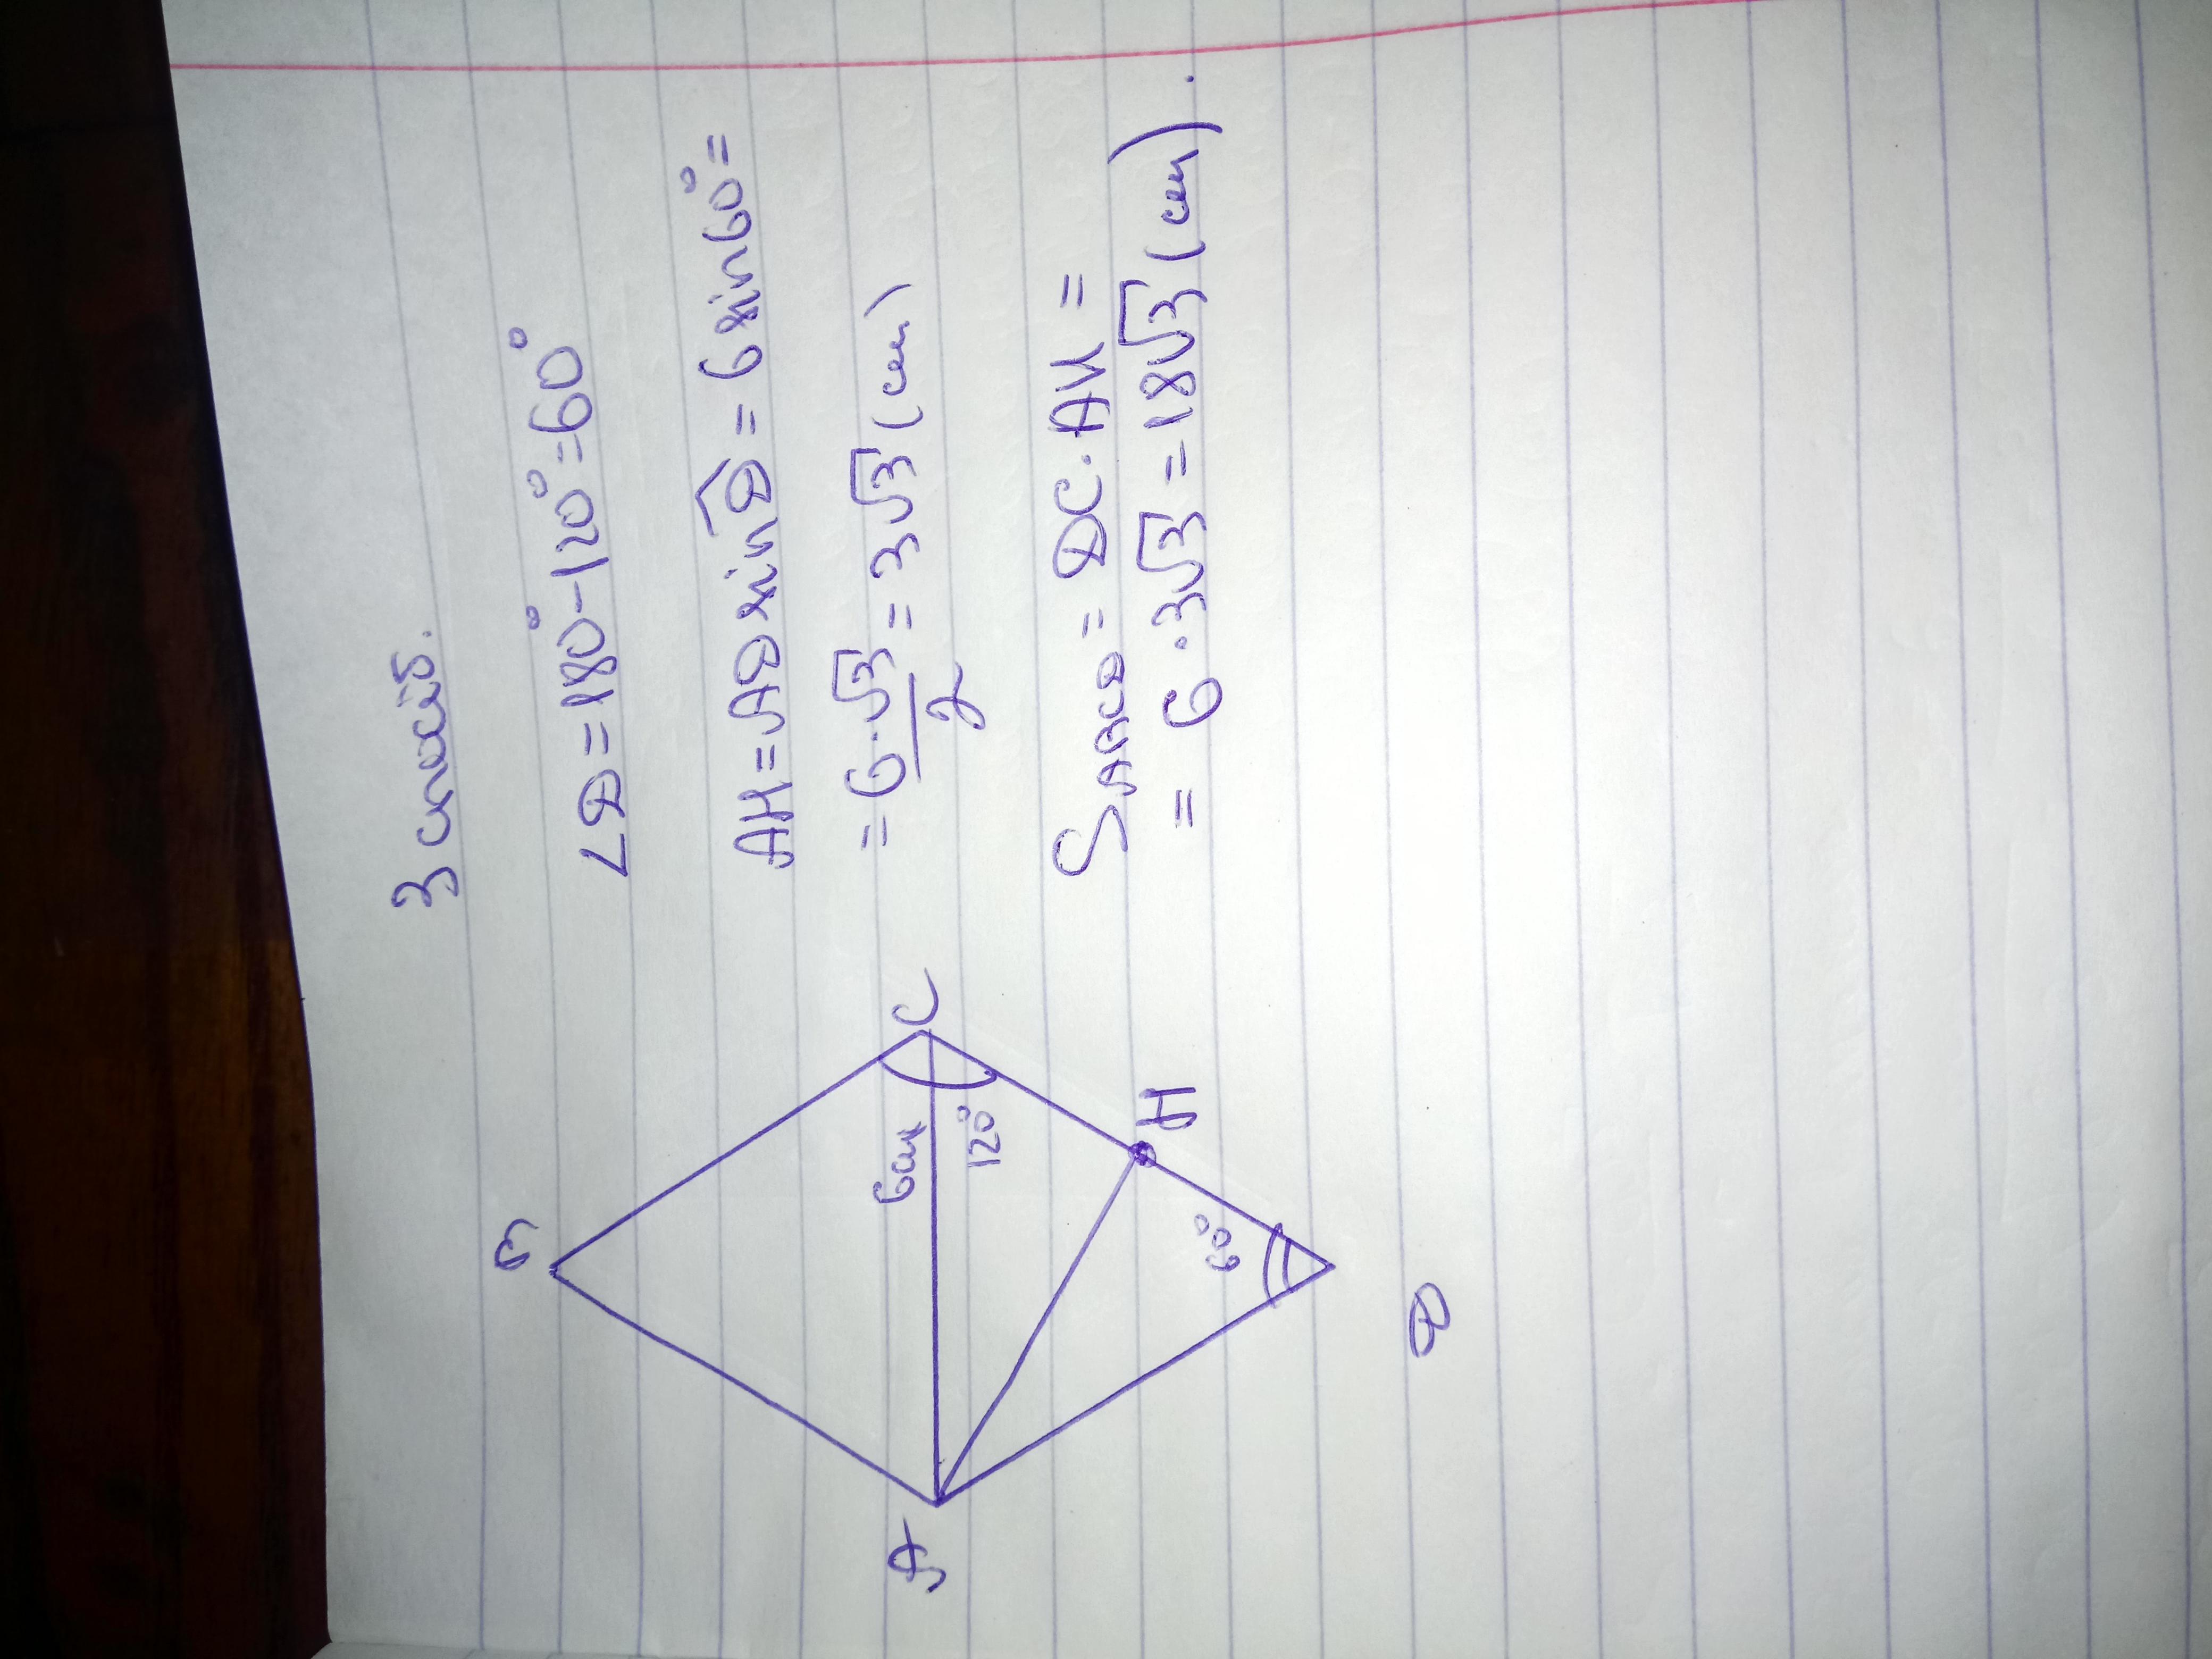 3 спосіб.
∠D = 180° - 120° = 60°
AH = AD sin D̂ = 6 sin 60° =
= 6·√3/2 = 3√3 (см)
S ABCD = DC · AH =
= 6 · 3√3 = 18√3 (см).
B
A
C
6см
120°
H
60°
D